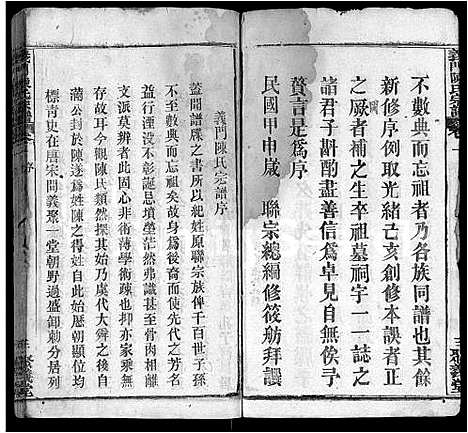 義門陳氏宗譜卷一
不數典而忘祖者乃各族同譜也其餘
新修序例取光緒己亥創修本誤者正
之厥者補之生卒祖墓祠宇一一誌之
諸君子斟酌盡善信為卓見自無俟予
贅言是為序
民國甲申歲　聯宗總編修筱舫拜譔
聚義堂
義門陳氏宗譜序
蓋聞譜牒之書所以紀姓原聯宗族俾千百世子孫
不至數典而忘祖矣故身為後裔而使先代之芳名
益行湮沒不彰誕思墳塋茫然甚至骨肉相殘
文派莫辨者此固心非術薄學術疎也抑亦家乘無
存故耳今觀陳氏頹然探其始乃虞代大舜之後周
滿公封於陳遂為姓陳之得姓自此始歷朝顯位均
標青史在唐宋間義聚一堂朝野過盛卸勅分居列
序
聚義堂